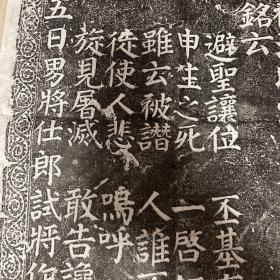 銘云
避聖讓位 不基
申生之死 一啓
雖云被譖 人誰
徒使人悲 嗚呼
旋見屠滅 敢告讒
五日男將仕郎試將